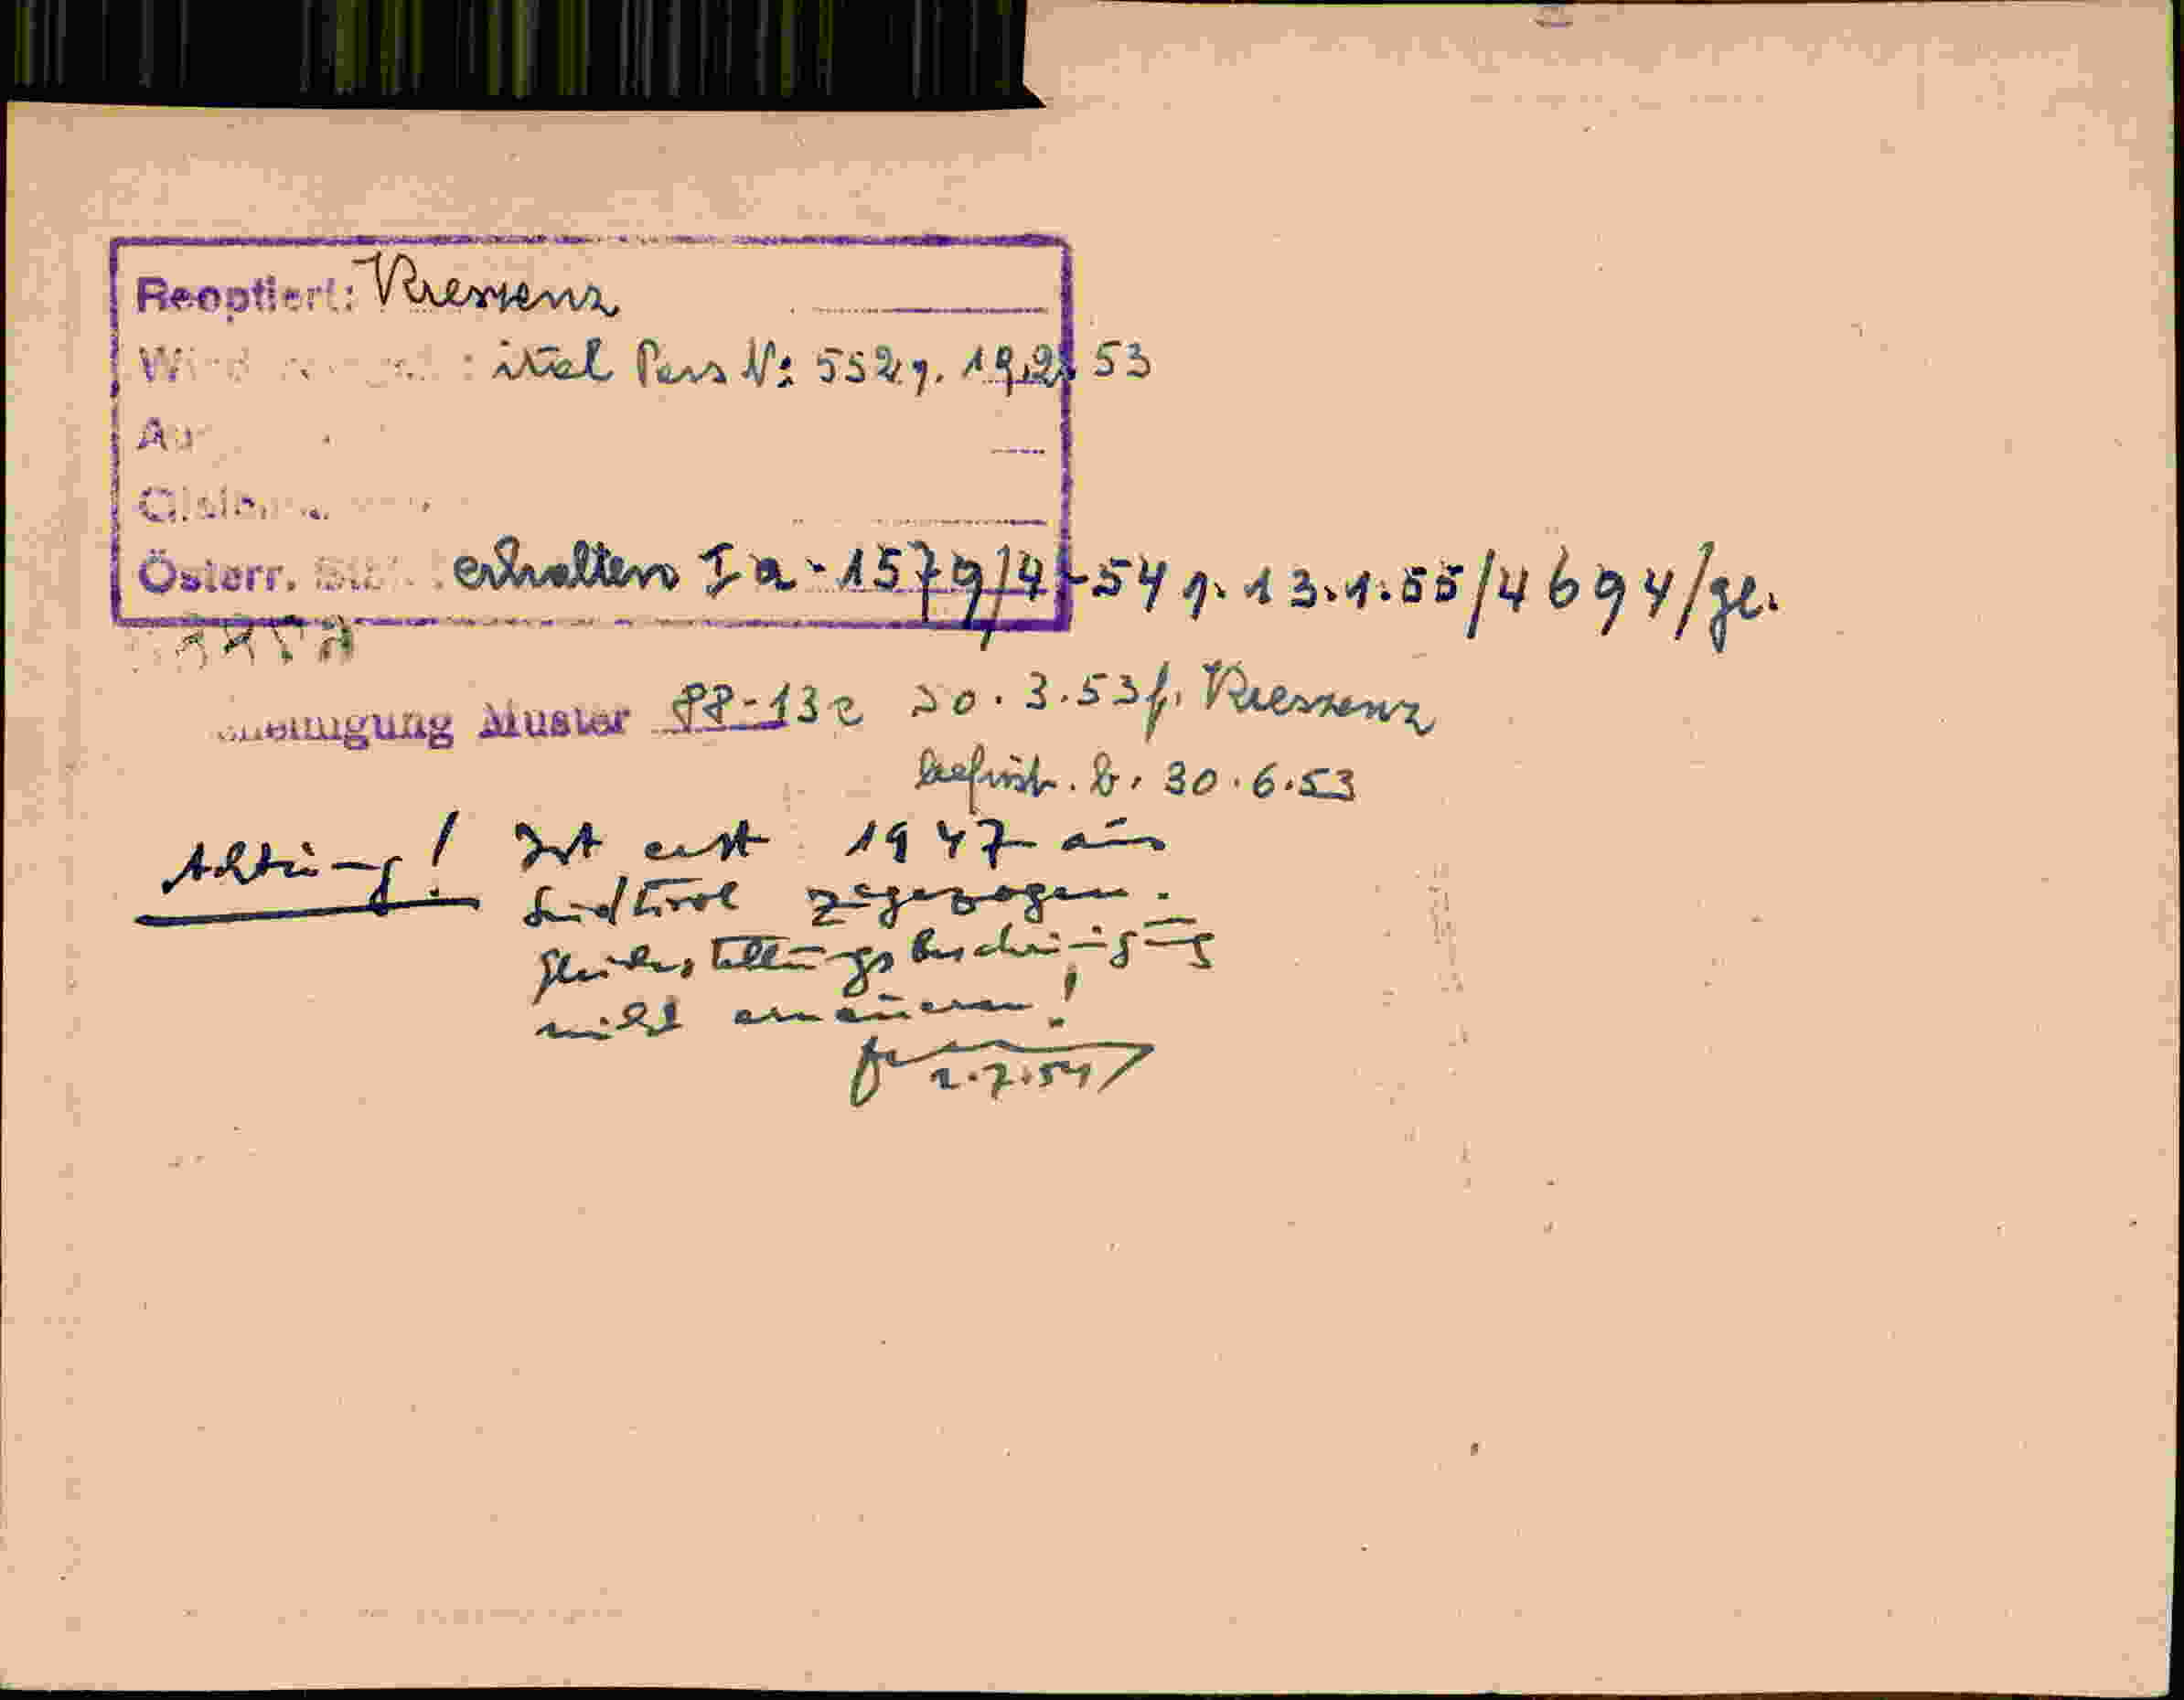 Reoptiert: Kressenz
Wird : ital Pass N: 552 v. 19.2. 53
Österr. erhalten I a - 1579/4-54 v. 13.1.55/4694/ge.
Muster 88-13c 30.3.53 f. Kressenz
befrist. b. 30.6.53
Achtung! Ist erst 1947 aus
Südtirol zugezogen.
Gleichstellungsbescheinigung
nicht erneuern!
2.7.54